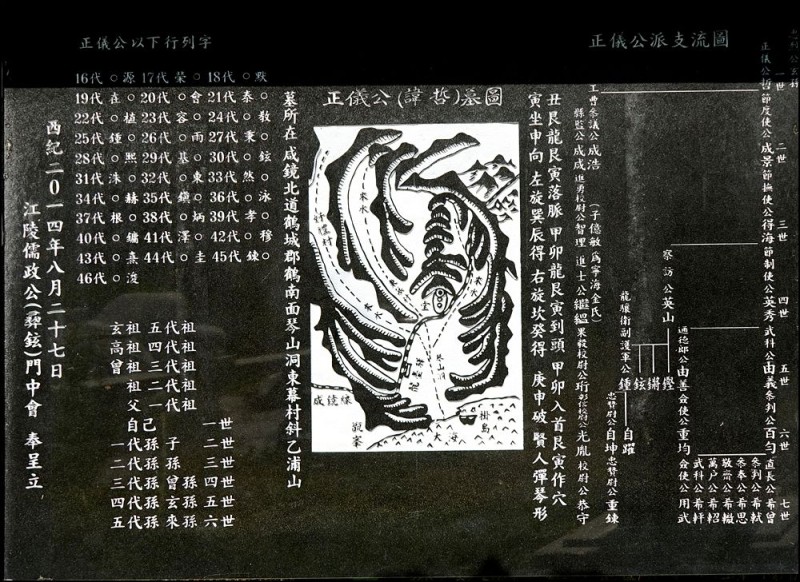 正儀公派支流圖
一世
二世
三世
四世
五世
六世
七世
正儀公哲
節度使公成景
節撫使公得海
節制使公英秀
武科公由義
參判公百勻
直長公希曾
參判公希軾
參奉公希思
敬齋公希轍
萬戶公希軺
武科公希軒
察訪公英山
通德郎公由善
僉使公重均
僉使公用武
龍驤衛副護軍公
鍾
鉉
鏘
鏗
自躍
忠贊尉公自坤
忠贊尉公重鍊
工曹參議公成浩
(子億敏爲寧海金氏)
縣監公成咸
進勇校尉公智理
進士公繼縕
果毅校尉公珩
彰信校尉公光胤
校尉公恭守
正儀公(諱 哲)墓圖
丑艮龍艮寅落脈 甲卯龍艮寅到頭 甲卯入首艮寅作穴
寅坐申向 左旋巽辰得 右旋坎癸得 庚申破 賢人彈琴形
社禮村
來水
來水
來水
琴山洞
咸鏡線
大海
掛島
墓所在 咸鏡北道鶴城郡鶴南面琴山洞東幕村斜乙浦山
正儀公以下行列字
16代 ○源 17代 榮○ 18代 ○默
19代 在○ 20代 ○會 21代 泰○
22代 ○植 23代 容○ 24代 ○敎
25代 鍾○ 26代 ○雨 27代 秉○
28代 ○熙 29代 基○ 30代 ○鉉
31代 洙○ 32代 ○東 33代 然○
34代 ○赫 35代 鎭○ 36代 ○泳
37代 根○ 38代 ○炳 39代 孝○
40代 ○鏞 41代 澤○ 42代 ○穆
43代 熹○ 44代 ○圭 45代 鍊○
46代 ○浚
玄祖 五代祖
高祖 四代祖
曾祖 三代祖
祖 二代祖
父 一代祖
自己 一世
一代孫 子 二世
二代孫 孫 三世
三代孫 曾孫 四世
四代孫 玄孫 五世
五代孫 來孫 六世
西紀二0一四年八月二十七日
江陵儒政公(彛鉉)門中會 奉呈立